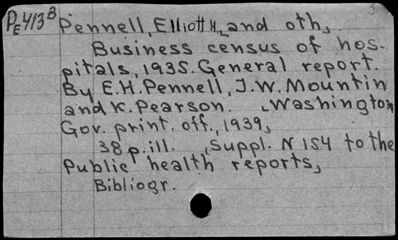 PE413B Pennell, Elliott H., and oth,
Business census of hos-
pitals, 1935. General report.
By E.H. Pennell, J.W. Mountin
and K. Pearson. Washington
Gov. print. off., 1939,
38 p. ill. Suppl. N 154 to the
Public health reports,
Bibliogr.